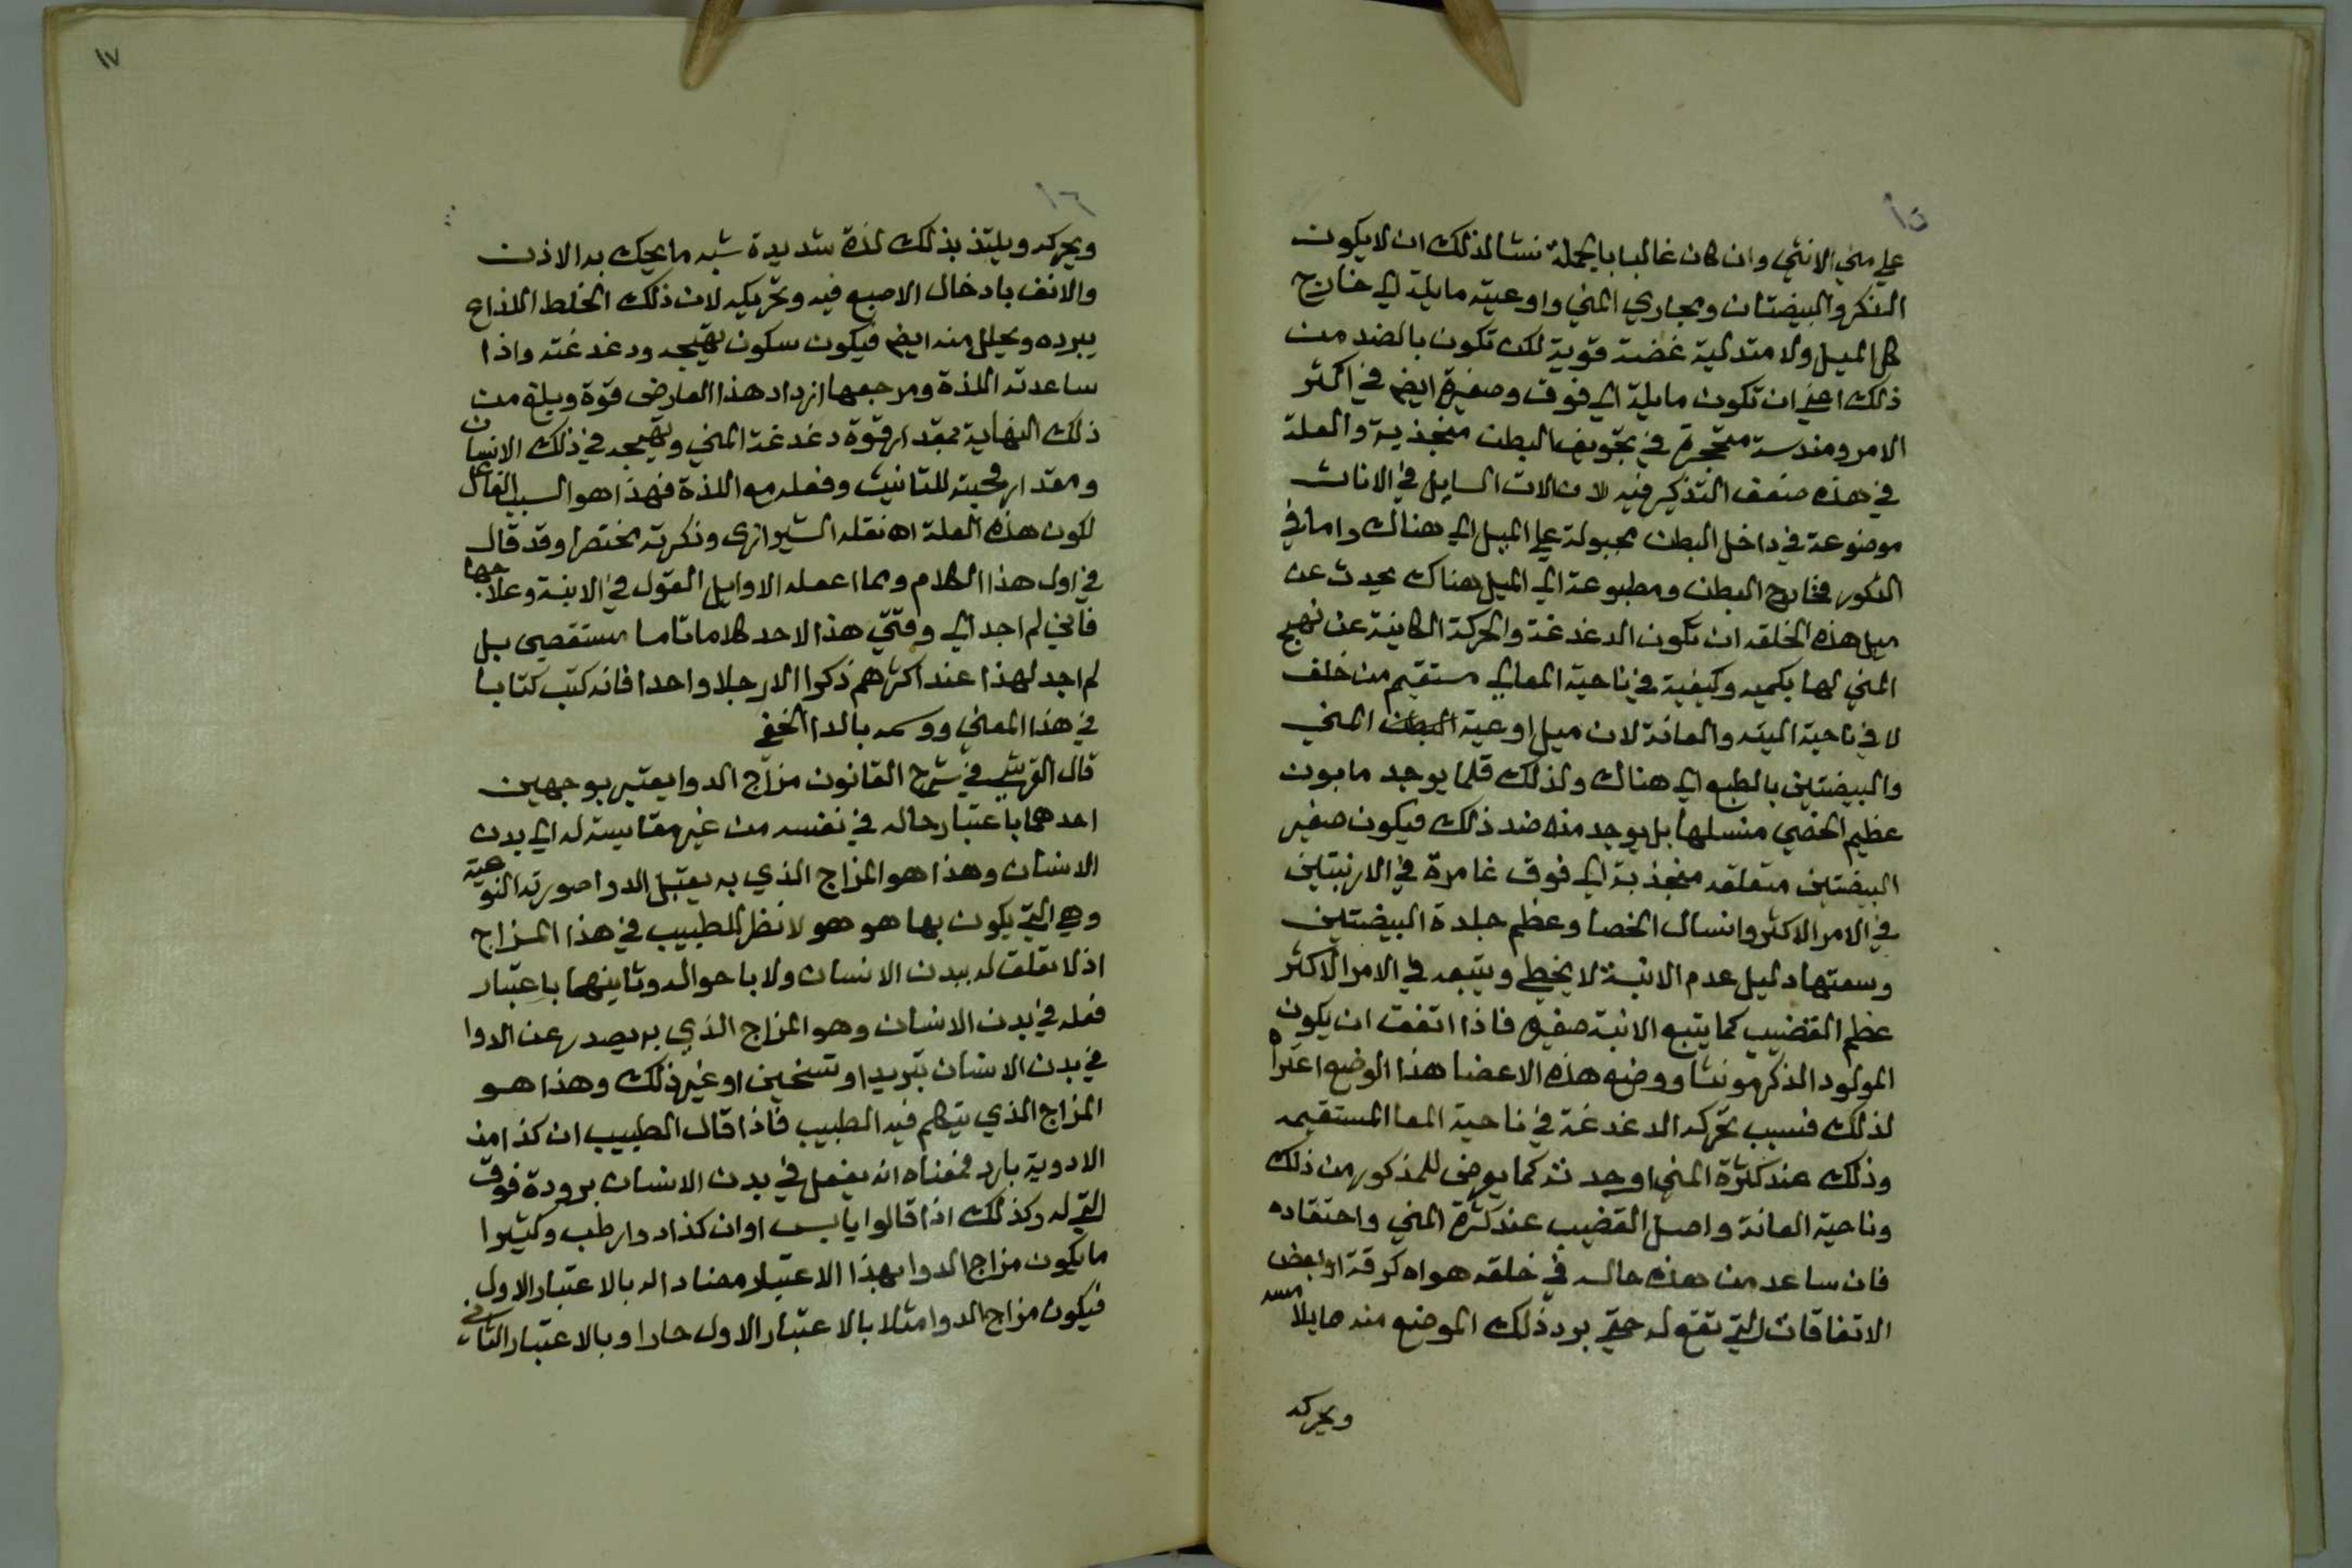 ١٥
علي مني الانثي وان كان غالبا بالجملة نشا لذلك ان لا يكون
الذكر والبيضتان ومجاري المني واوعيته مايلة الي خارج
كل الميل ولا متدلية غضة قوية لكن تكون بالضد من
ذلك اعني ان تكون مايلة الي فوق وصغيرة ايضم في اكثر
الامر ومندسة متحجرة في تجويف البطن منجذبة والعلة
في هذه ضعف التذكير فيه لان الات السايل في الاناث
موضوعة في داخل البطن مجبولة علي الميل الي هناك واما في
الذكور فخارج البطن ومطبوعة الي الميل هناك يحدث عن
ميل هذه الخلقه ان تكون الدغدغة والحركة الكاينة عن تهيج
المني لها بكميه وكيفية في ناحية المعا الي مستقيم من خلف
لا في ناحية اليته والعانة لان ميل اوعية البطن المني
والبيضتين بالطبع الي هناك ولذلك قلما يوجد مابون
عظيم الخصي منسلها بل يوجد منه ضد ذلك فيكون صغير
البيضتين متعلقه منجذبة الي فوق غامرة في الارنبتين
في الامر الاكثر وانسال الخصا وعظم جلدة البيضتين
وسعتها دليل عدم الابنة لا يخطي ويتبعه في الامر الاكثر
عظم القضيب كما يتبع الابنة صغره فاذا اتفق ان يكون
المولود الذكر مونثا ووضع هذه الاعضا هذا الوضع اعتراه
لذلك فسبب تحركه الدغدغة في ناحية المعا المستقيمه
وذلك عند كثرة المني اوحدته كما يعرض للمذكور من ذلك
وناحية العانة واصل القضيب عند كثرة المني واحتقاده
فان ساعد من هذه حاله في خلقه هواه كرقة او بعض
الاتفاقات التي تقع له حتي برد ذلك الموضع منه مايلامسه
ويحركه
١٦
ويحركه ويلتذ بذلك لذة شديدة شبه ما يحك به الاذن
والانف بادخال الاصبع فيه وتحريكه لان ذلك الخلط اللذاع
يبرده ويحلل منه ايضم فيكون سكون تهيجه ودغدغته واذا
ساعدته اللذة ومرجعها ازداد هذا العارض قوة وبلغ من
ذلك النهاية بمقدار قوة دغدغة المني وتهيجه في ذلك الانسان
ومقدار محبته للتانيث وفعله مع اللذة فهذا هو السبب الفاعل
لكون هذه العلة اه نقله الشيرازي وذكرته مختصرا وقد قال
في اول هذا الكلام ومما اعمله الاوايل القول في الابنة وعلاجها
فانني لم اجد الي وقتي هذا لاحد كلاما تاما مستقصي بل
لم اجد لهذا عند اكثرهم ذكرا الا رجلا واحدا فانه كتب كتابا
في هذا المعني ووسمه بالدا الخفي
قال القرشي في شرح القانون مزاج الدوا يعتبر بوجهين
احدهما باعتبار حاله في نفسه من غير مقايسته له الي بدن
الانسان وهذا هو المزاج الذي به يقبل الدوا صورته النوعية
وهي التي يكون بها هو هو لا نظر للطبيب في هذا المزاج
اذ لا تعلق له ببدن الانسان ولا باحواله وثانيهما باعتبار
فعله في بدن الانسان وهو المزاج الذي به يصدر عن الدوا
في بدن الانسان تبريد او تسخين او غير ذلك وهذا هو
المزاج الذي يتكلم فيه الطبيب فاذا قال الطبيب ان كذا من
الادوية بارد فمعناه انه يفعل في بدن الانسان برودة فوق
التي له وكذلك اذا قالوا يابس او ان كذا دوا رطب وكثيرا
ما يكون مزاج الدوا بهذا الاعتبار مضادا له بالاعتبار الاول
فيكون مزاج الدوا مثلا بالاعتبار الاول حارا وبالاعتبار الثاني
١٧